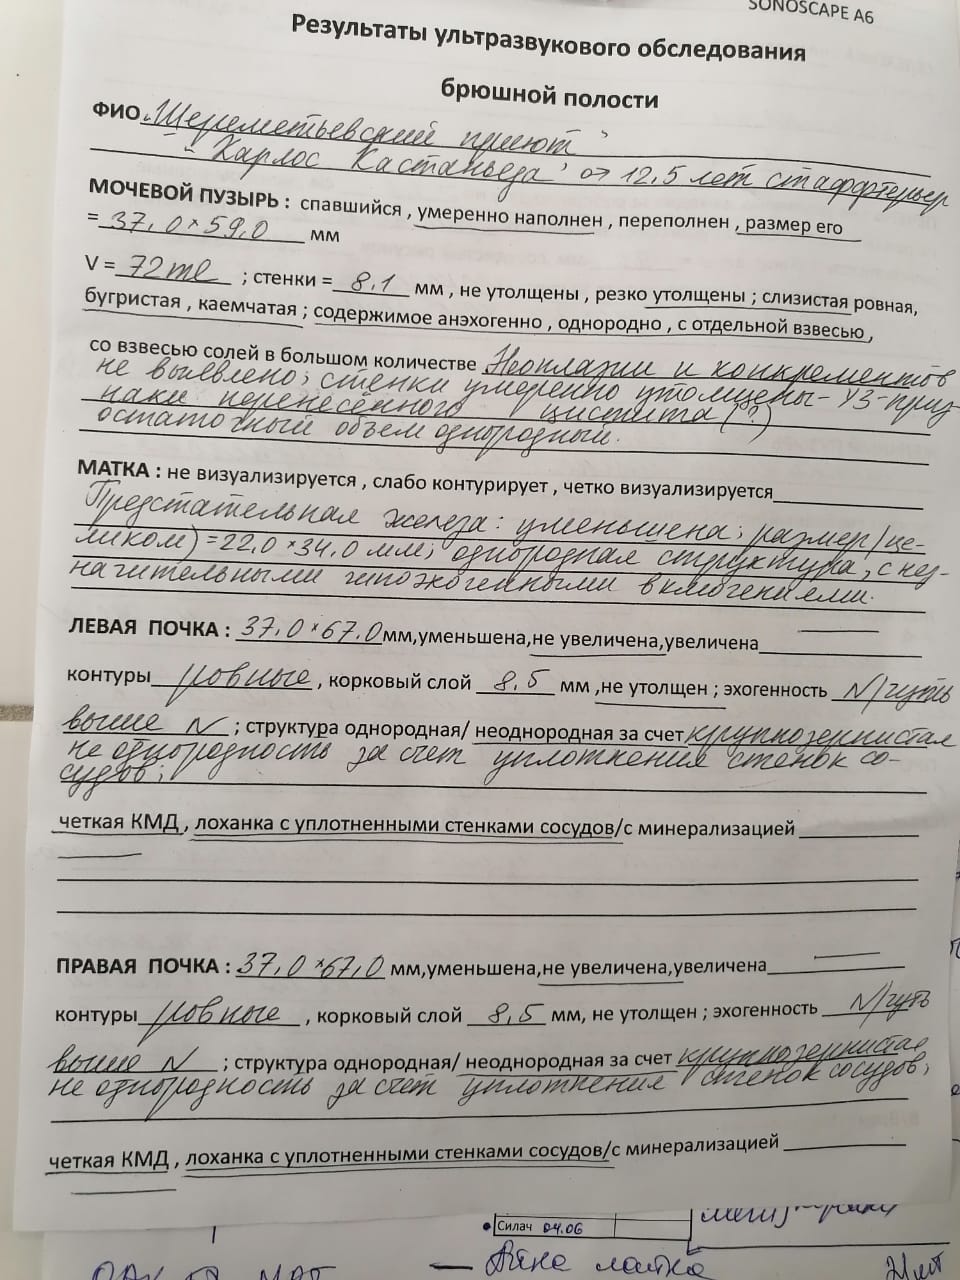 SONOSCAPE A6
Результаты ультразвукового обследования
брюшной полости
ФИО „Шереметьевский приют"
„Карлос Кастаньеда" ♂ 12,5 лет стаффтерьер
МОЧЕВОЙ ПУЗЫРЬ : спавшийся , умеренно наполнен , переполнен , размер его
= 37,0 × 59,0 мм
V = 72 ml ; стенки = 8,1 мм , не утолщены , резко утолщены ; слизистая ровная,
бугристая , каемчатая ; содержимое анэхогенно , однородно , с отдельной взвесью ,
со взвесью солей в большом количестве Неоплазии и конкрементов
не выявлено; стенки умеренно утолщены - УЗ-приз-
наки перенесённого цистита (?)
остаточный объем однородный.
МАТКА : не визуализируется , слабо контурирует , четко визуализируется
Предстательная железа: уменьшена; размер/це-
ликом) = 22,0 × 34,0 мм; однородная структура, с нез-
начительными гипоэхогенными включениями.
ЛЕВАЯ ПОЧКА : 37,0 × 67,0 мм,уменьшена,не увеличена,увеличена
контуры ровные , корковый слой 8,5 мм ,не утолщен ; эхогенность N/чуть
выше N ; структура однородная/ неоднородная за счет крупнозернистая
неоднородность за счет уплотнения стенок со-
судов;
четкая КМД , лоханка с уплотненными стенками сосудов/с минерализацией
ПРАВАЯ ПОЧКА : 37,0 × 67,0 мм,уменьшена,не увеличена,увеличена
контуры ровные , корковый слой 8,5 мм, не утолщен ; эхогенность N/чуть
выше N ; структура однородная/ неоднородная за счет крупнозернистая
неоднородность за счет уплотнения стенок сосудов;
четкая КМД , лоханка с уплотненными стенками сосудов/с минерализацией
Силач 04.06